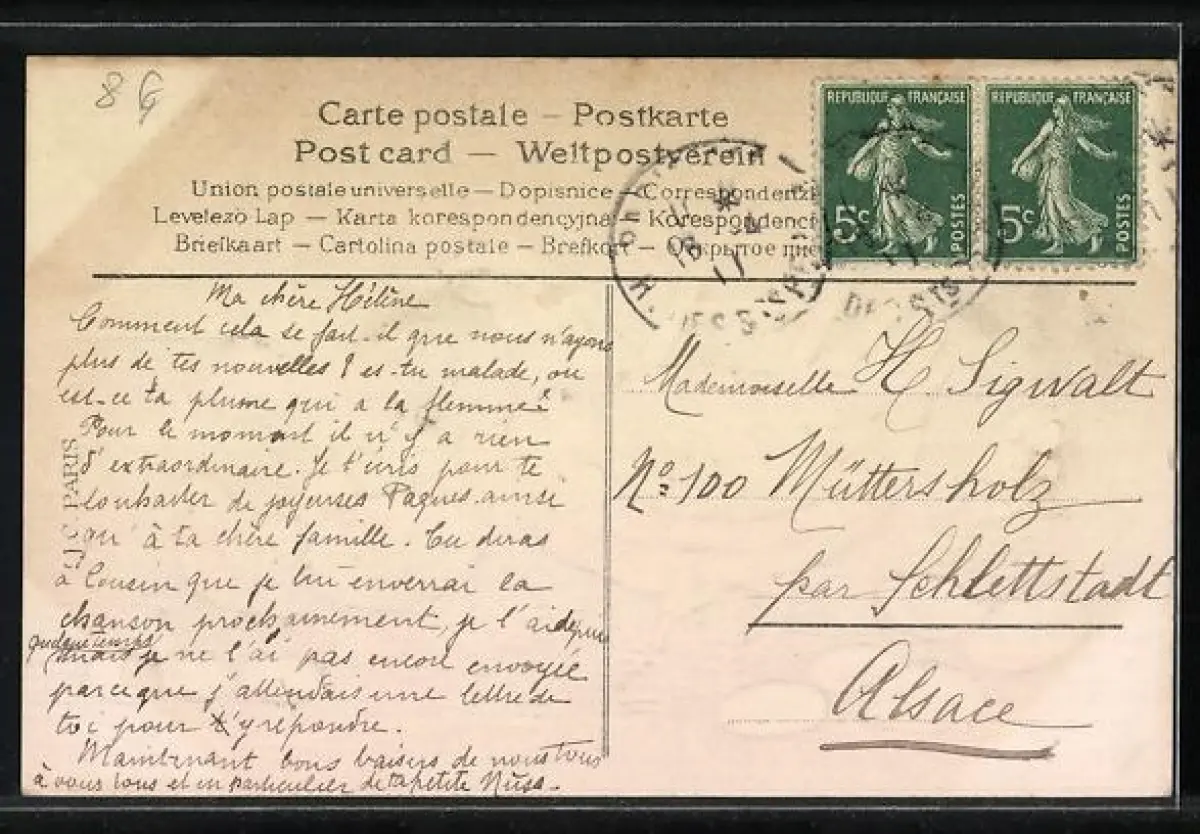 8
Carte postale – Postkarte
Post card — Weltpostverein
Union postale universelle — Dopisnice — Correspondenzk
Levelezö Lap — Karta korespondencyjna — Korespondenc
Briefkaart — Cartolina postale — Brefkort — Открытое пис
REPUBLIQUE FRANÇAISE
5c
POSTES
REPUBLIQUE FRANÇAISE
5c
POSTES
PARIS
Ma chère Hélène
Comment cela se fait-il que nous n'ayons
plus de tes nouvelles? es-tu malade, ou
est-ce ta plume qui a la flemme?
Pour le moment il n'y a rien
d'extraordinaire. Je t'écris pour te
souhaiter de joyeuses Paques ainsi
qu'à ta chère famille. Tu diras
à Cousin que je lui enverrai la
chanson prochainement, je l'ai depuis
quelque temps
mais je ne l'ai pas encore envoyée
parce que j'attendais une lettre de
toi pour t'y repondre.
Maintenant bons baisers de nous tous
à vous tous et en particulier de ta petite Nuss.
Mademoiselle H Sigwalt
No 100 Müttersholz
par Schlettstadt
Alsace